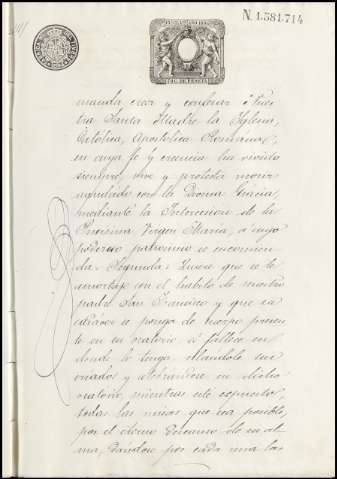 N. 1.581.714
manda creer y confesar ntra
tra Santa Madre la Iglesia,
Católica, Apostólica Romana,
en cuya fé y creencia ha vivido
siempre, vive y protesta morir
ayudado con la Divina Gracia,
mediante la Intercesion de la
Purísima Vergen Maria, a cuyo
poderoso patrocinio se encomien
da. Segunda: Quiere que se le
amortaje con el habito de nuestro
padre San Francisco y que su
cadáver se ponga de cuerpo presen
te en su oratorio si fallece en
donde lo tenga
criados y celebrandose en dicho
oratorio, mientras esté expuesto,
todas las misas que sea posible,
por el eterno descanso de su al
ma, dandose por cada una las